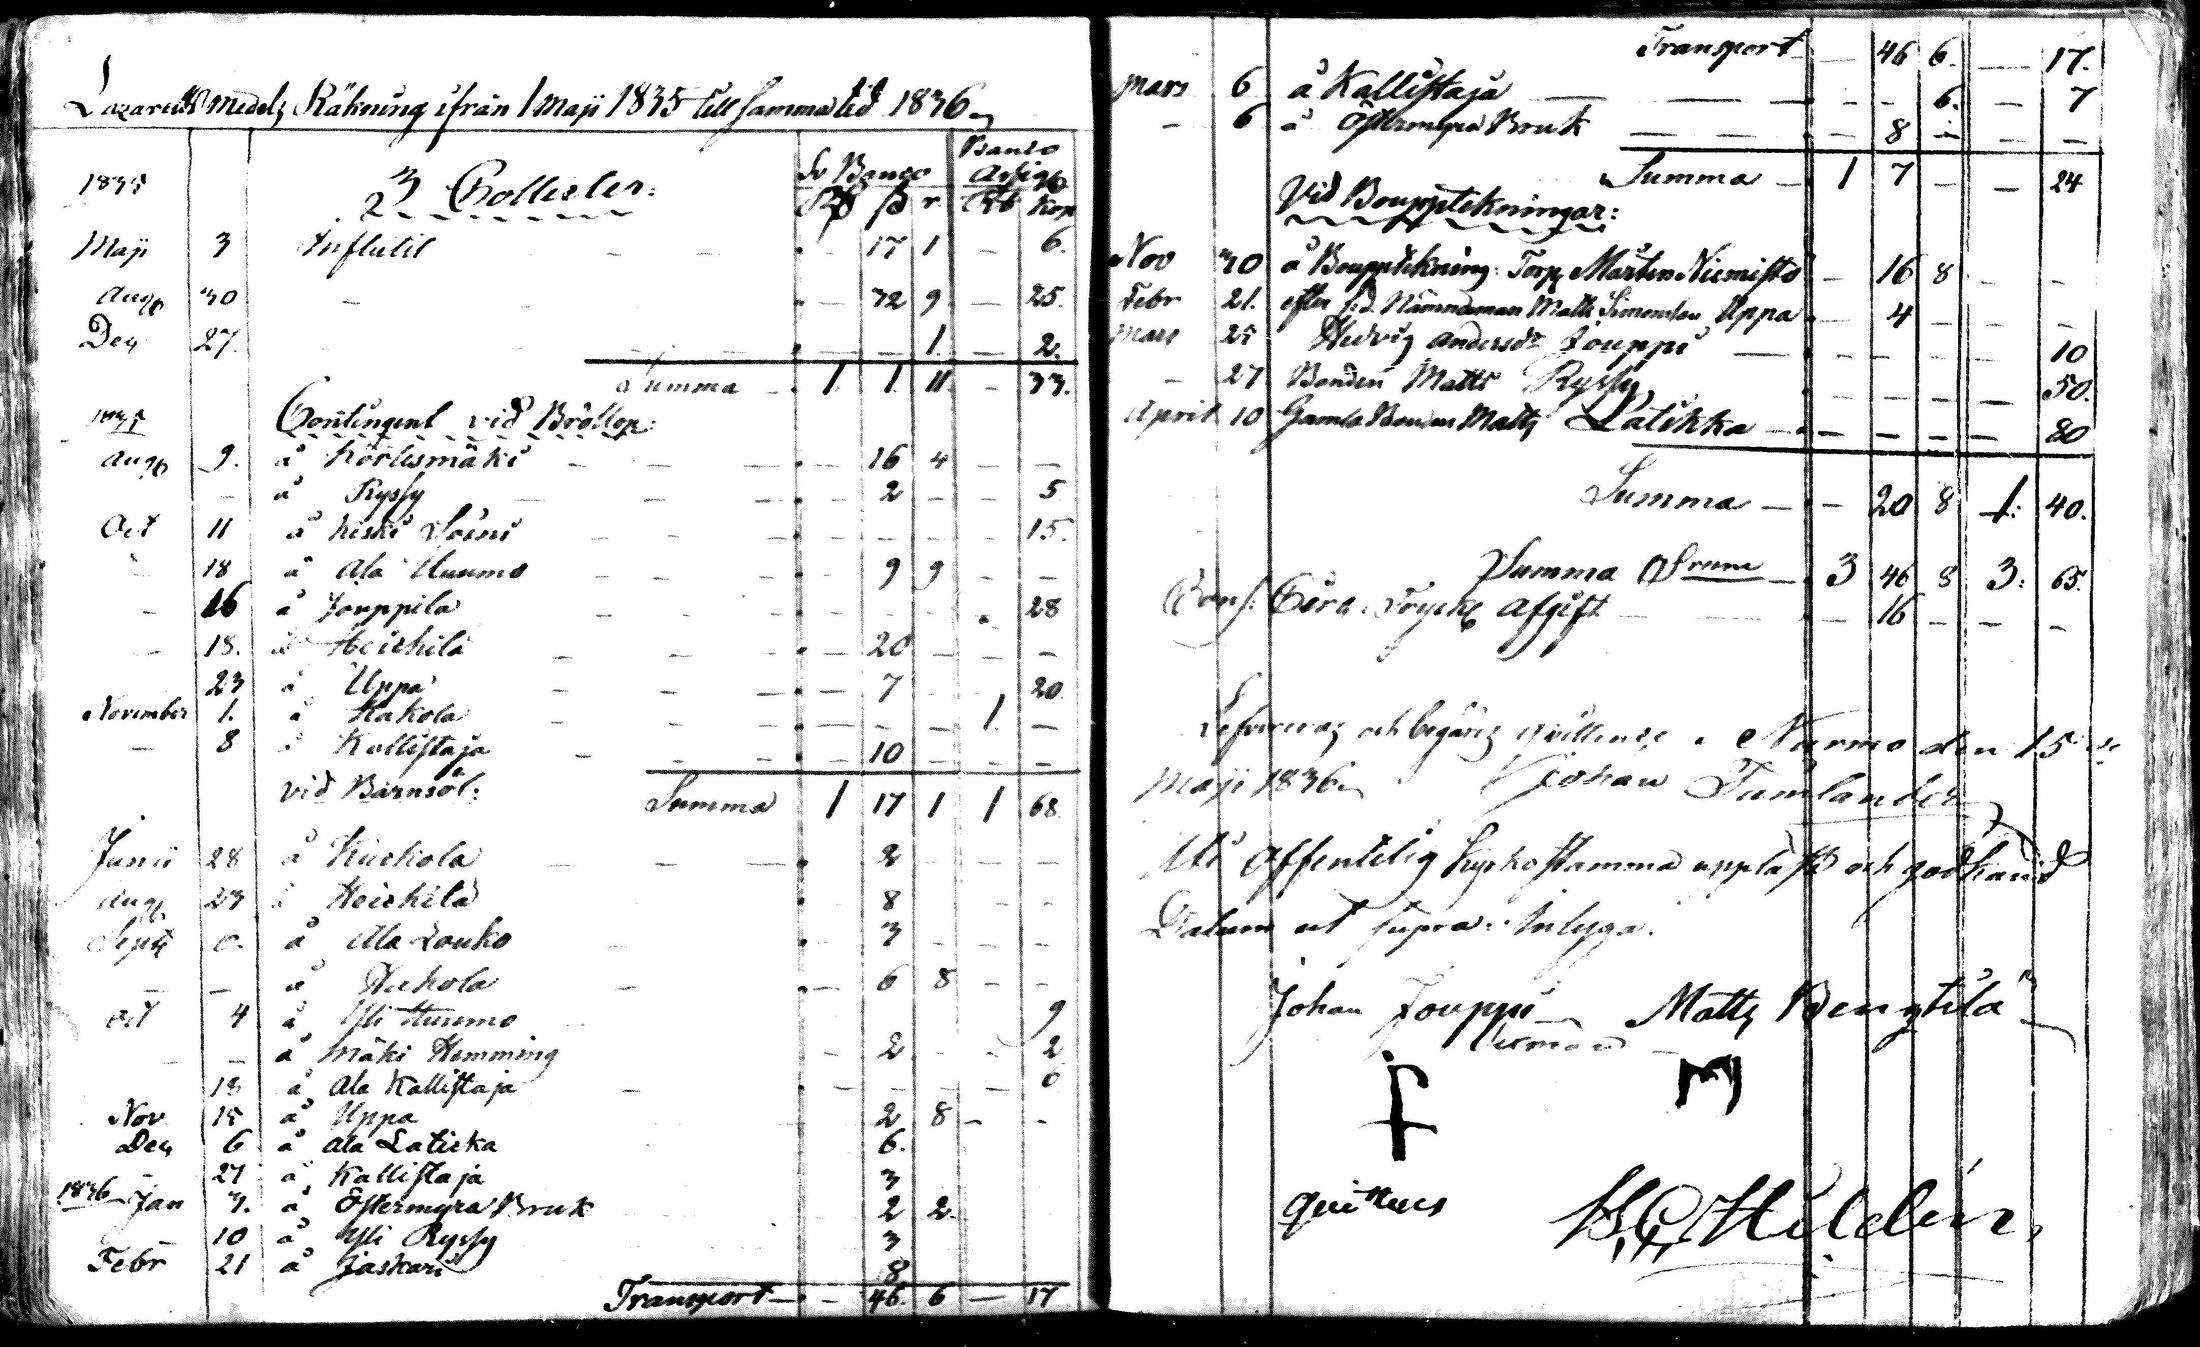 Lazaretts Medels Räkning ifrån 1 Maji 1835 till samma tid 1836
1835 3 Collecter: Sv Banco Banco Assig
Rd s r Rb Kop
Maji 3 Influtit — 17 1 — 6.
Aug 30 — 32 9 — 25.
Dec 27. — — 1. — 2.
Summa 1. 1. 11. — 33.
1835 Contingent vid Bröllop:
Aug 9. å 16 4 — —
— å Ryssy 2 — — 5
Oct 11 å Heiki Soini 15.
18 å Ala Uuumo 9 9 — —
— 16 å Jouppila 28
— 18. å Heickilä 20 — — —
23 å Uppa 7 20
November 1. å Kakola 1. —
— 8 å Kallistaja 10 — — —
vid Barnsöl: Summa 1 17 1 1 68.
Junii 28 å Kuckola 2
Aug 23 å Heickilä 8 — —
Sept å Ala Louko 3 — — —
— — å Huhola 6 8 — —
Oct 4 å Yli Huumo 9
— — å Mäki Hemming — 2 — — 2
18 å Ala Kallistaja — — — — 6
Nov 15 å Uppa 2 8 — —
Dec 6 å Ala Laticka 6.
27 å Kallistaja 3
1836 Jan 3. å Östermyra Bruk 2 2
10 å Yli Ryssy 3
Febr 21 å Jaskari 8
Transport — 46. 6 — 17
Transport — 46 6. — 17.
Mars 6 å Kallistaja — — 6. — 7
— 6 å Östermyra Bruk — 8 — — —
Summa 1 7 — — 24
Vid Bouppteckningar:
Nov 30 å Bouppteckning: Torp Mårten Niemistö — 16 8 — —
Febr 21. efter f:d. Nämndeman Matts Simonsson Uppa 4 — — —
Mars 25 Hedvig Andersdr Jouppi — — — — — 10
— 27 Bonden Matts Ryssy — — — — 50.
April 10 Gamla Bonden Matts Latikka — — — — 80
Summa — — 20 8 1: 40.
Summa 3 46 8 3: 65.
Afgift — 16 — — —
och begäres quittence. Nurmo den 15
Maji 1836 Johan Tumlander
Uti Offentelig Kyrkostamma uppläst och godkänd
Datum ut supra: Intyga.
Johan Jouppi Matts Bengtila
quitteras
Hildén.